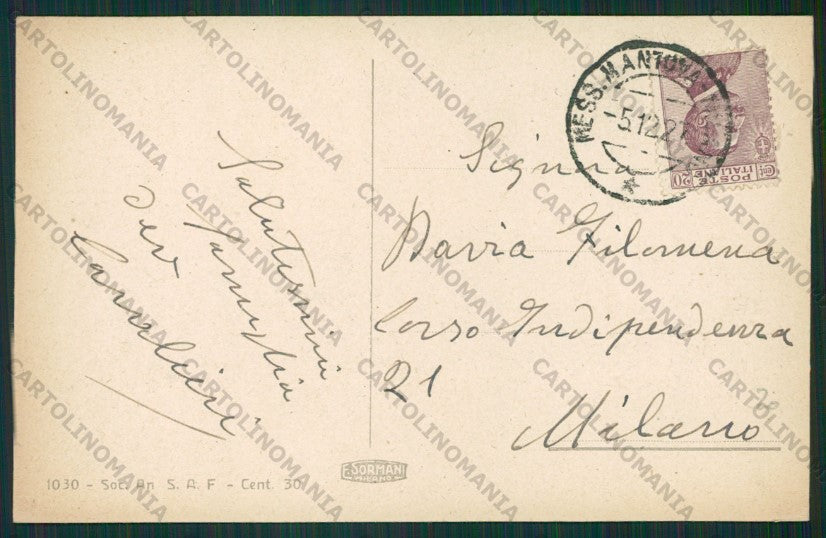 Salutissimi
Famiglia
MESS. MANTOVA
-5.12.21
POSTE
ITALIANE
Cent 20
Signora
Filomena
Corso Indipendenza
21
Milano
1030 - Soc. An. S. A. F - Cent. 30
F. SORMANI
MILANO
CARTOLINOMANIA